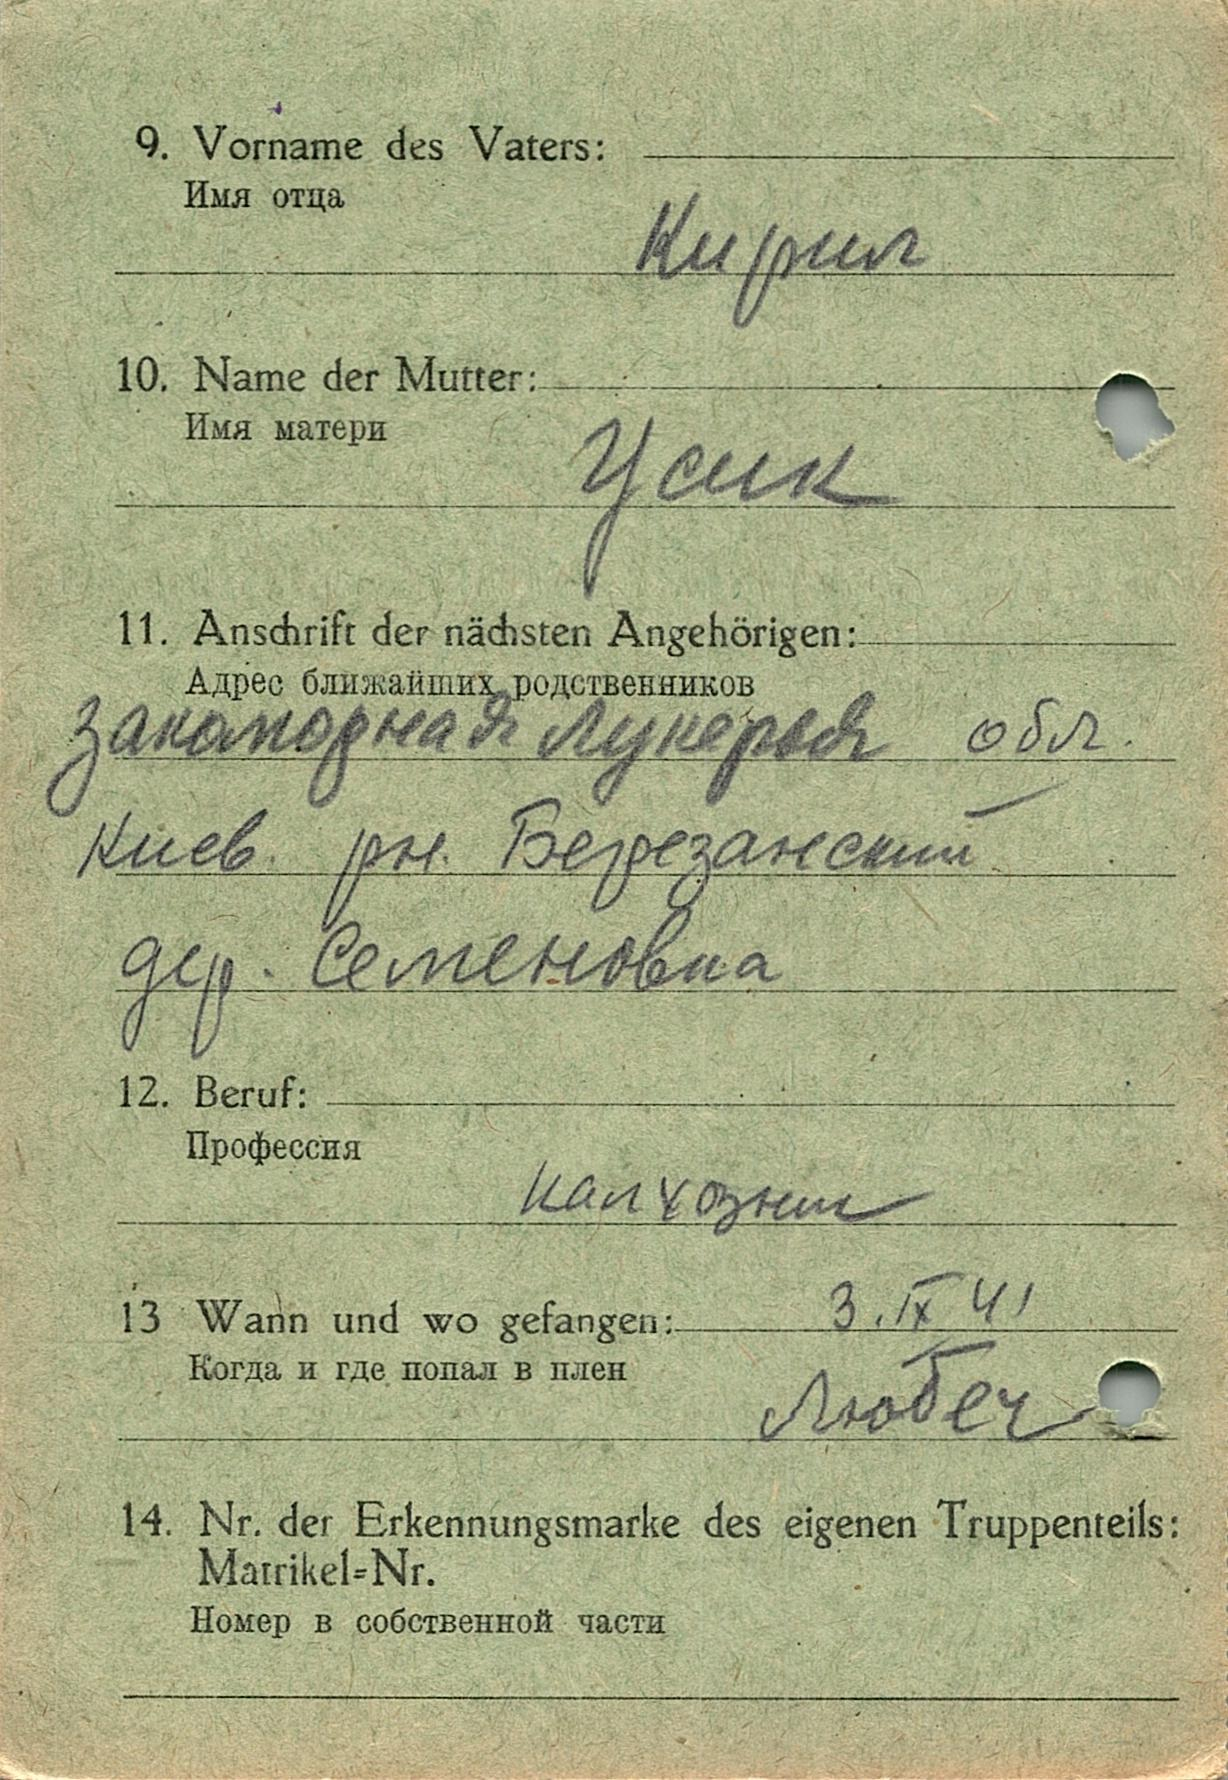 9. Vorname des Vaters:
Имя отца
Кирил
10. Name der Mutter:
Имя матери
Усик
11. Anschrift der nächsten Angehörigen:
Адрес ближайших родственников
Закамодная Лукерья обл.
Киев. рн. Березанский
дер. Семеновка
12. Beruf:
Профессия
калхозник
13 Wann und wo gefangen: 3.IX 41
Когда и где попал в плен
Любеч
14. Nr. der Erkennungsmarke des eigenen Truppenteils:
Matrikel=Nr.
Номер в собственной части